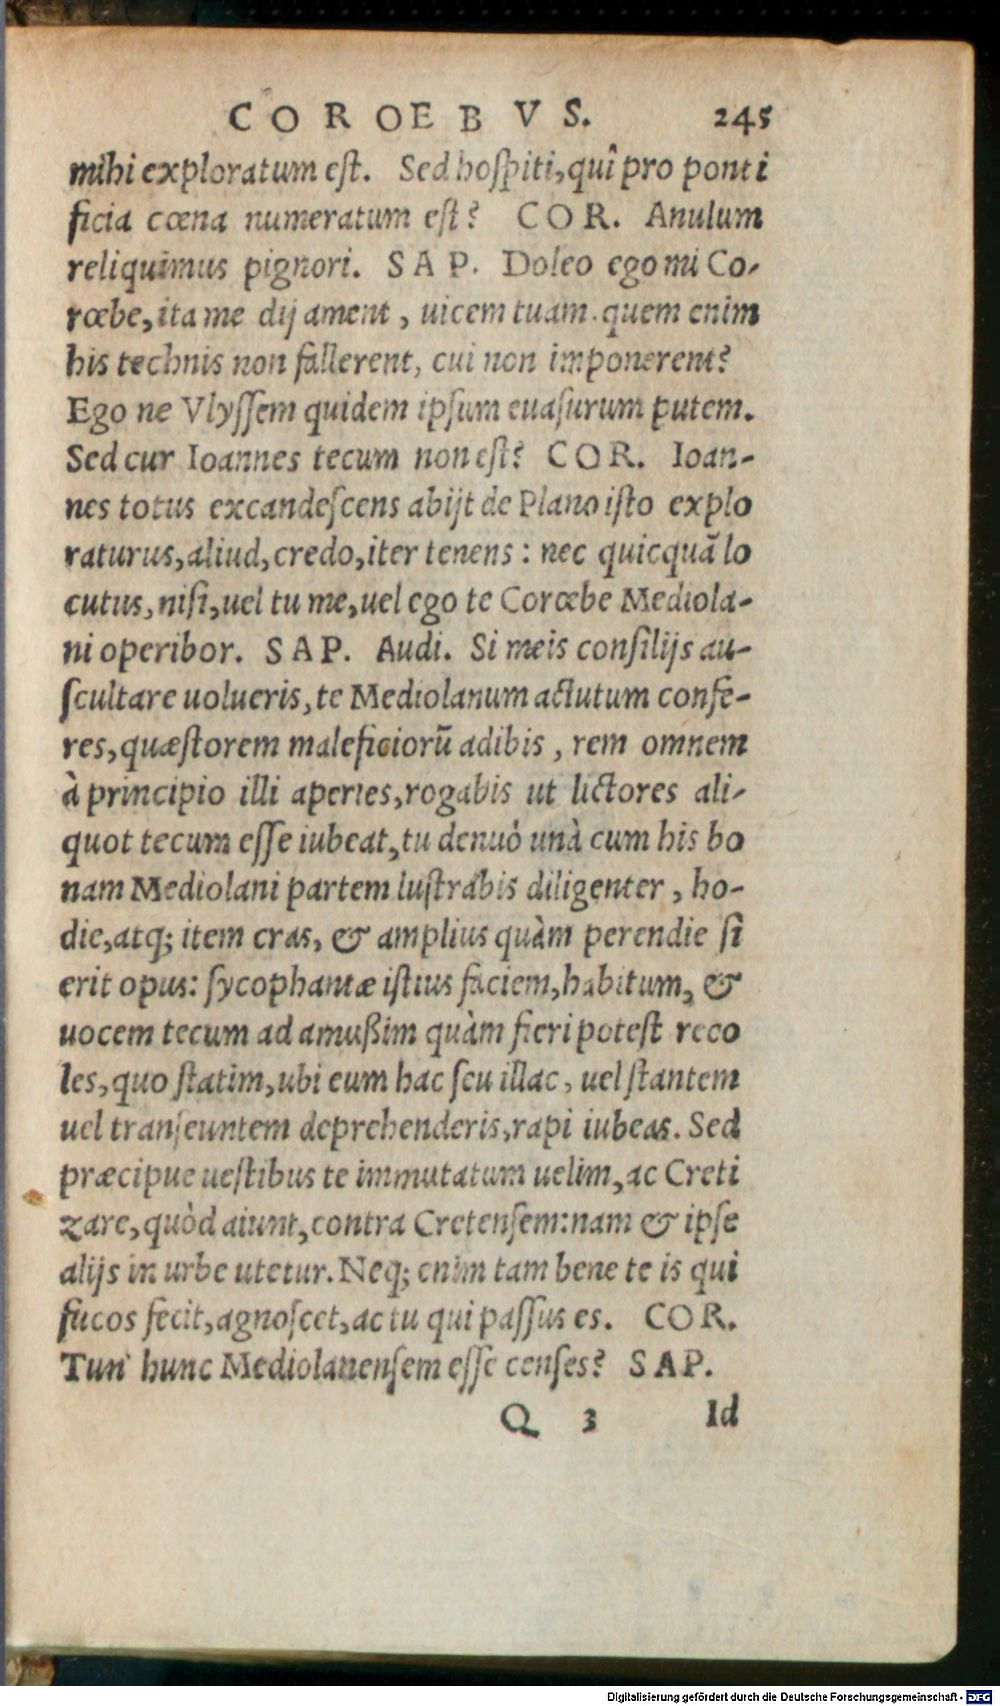 COROEBVS. 245
mihi exploratum est. Sed hospiti, quî pro ponti
ficia cœna numeratum est? COR. Anulum
reliquimus pignori. SAP. Doleo ego mi Co-
rœbe, ita me dij ament, uicem tuam. quem enim
his technis non fallerent, cui non imponerent?
Ego ne Vlyssem quidem ipsum euasurum putem.
Sed cur Ioannes tecum non est? COR. Ioan-
nes totus excandescens abijt de Plano isto explo
raturus, aliud, credo, iter tenens: nec quicquã lo
cutus, nisi, uel tu me, uel ego te Corœbe Mediola-
ni operibor. SAP. Audi. Si meis consilijs au-
scultare uolueris, te Mediolanum actutum confe-
res, quæstorem maleficiorũ adibis, rem omnem
à principio illi aperies, rogabis ut lictores ali-
quot tecum esse iubeat, tu denuò unà cum his bo
nam Mediolani partem lustrabis diligenter, ho-
die, atq; item cras, & amplius quàm perendie si
erit opus: sycophantæ istius faciem, habitum, &
uocem tecum ad amußim quàm fieri potest reco
les, quo statim, ubi eum hac seu illac, uel stantem
uel transeuntem deprehenderis, rapi iubeas. Sed
præcipue uestibus te immutatum uelim, ac Creti
zare, quòd aiunt, contra Cretensem: nam & ipse
alijs in urbe utetur. Neq; enim tam bene te is qui
fucos fecit, agnoscet, ac tu qui passus es. COR.
Tun' hunc Mediolanensem esse censes? SAP.
Q 3 Id
Digitalisierung gefördert durch die Deutsche Forschungsgemeinschaft - DFG